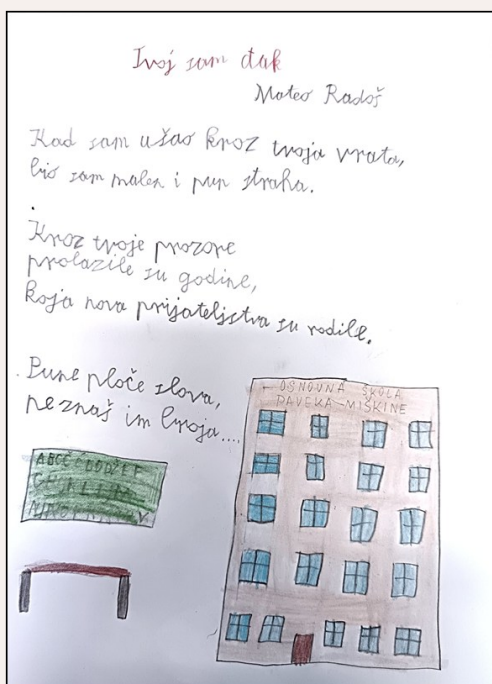 Tvoj sam đak
Mateo Radoš
Kad sam ušao kroz tvoja vrata,
bio sam malen i pun straha.
Kroz tvoje prozore
prolazile su godine,
koja nova prijateljstva su rodile.
Pune ploče slova,
ne znaš im broja....
OSNOVNA ŠKOLA
DAVEKA MIŠKINE
ABCČĆDDŽĐEF